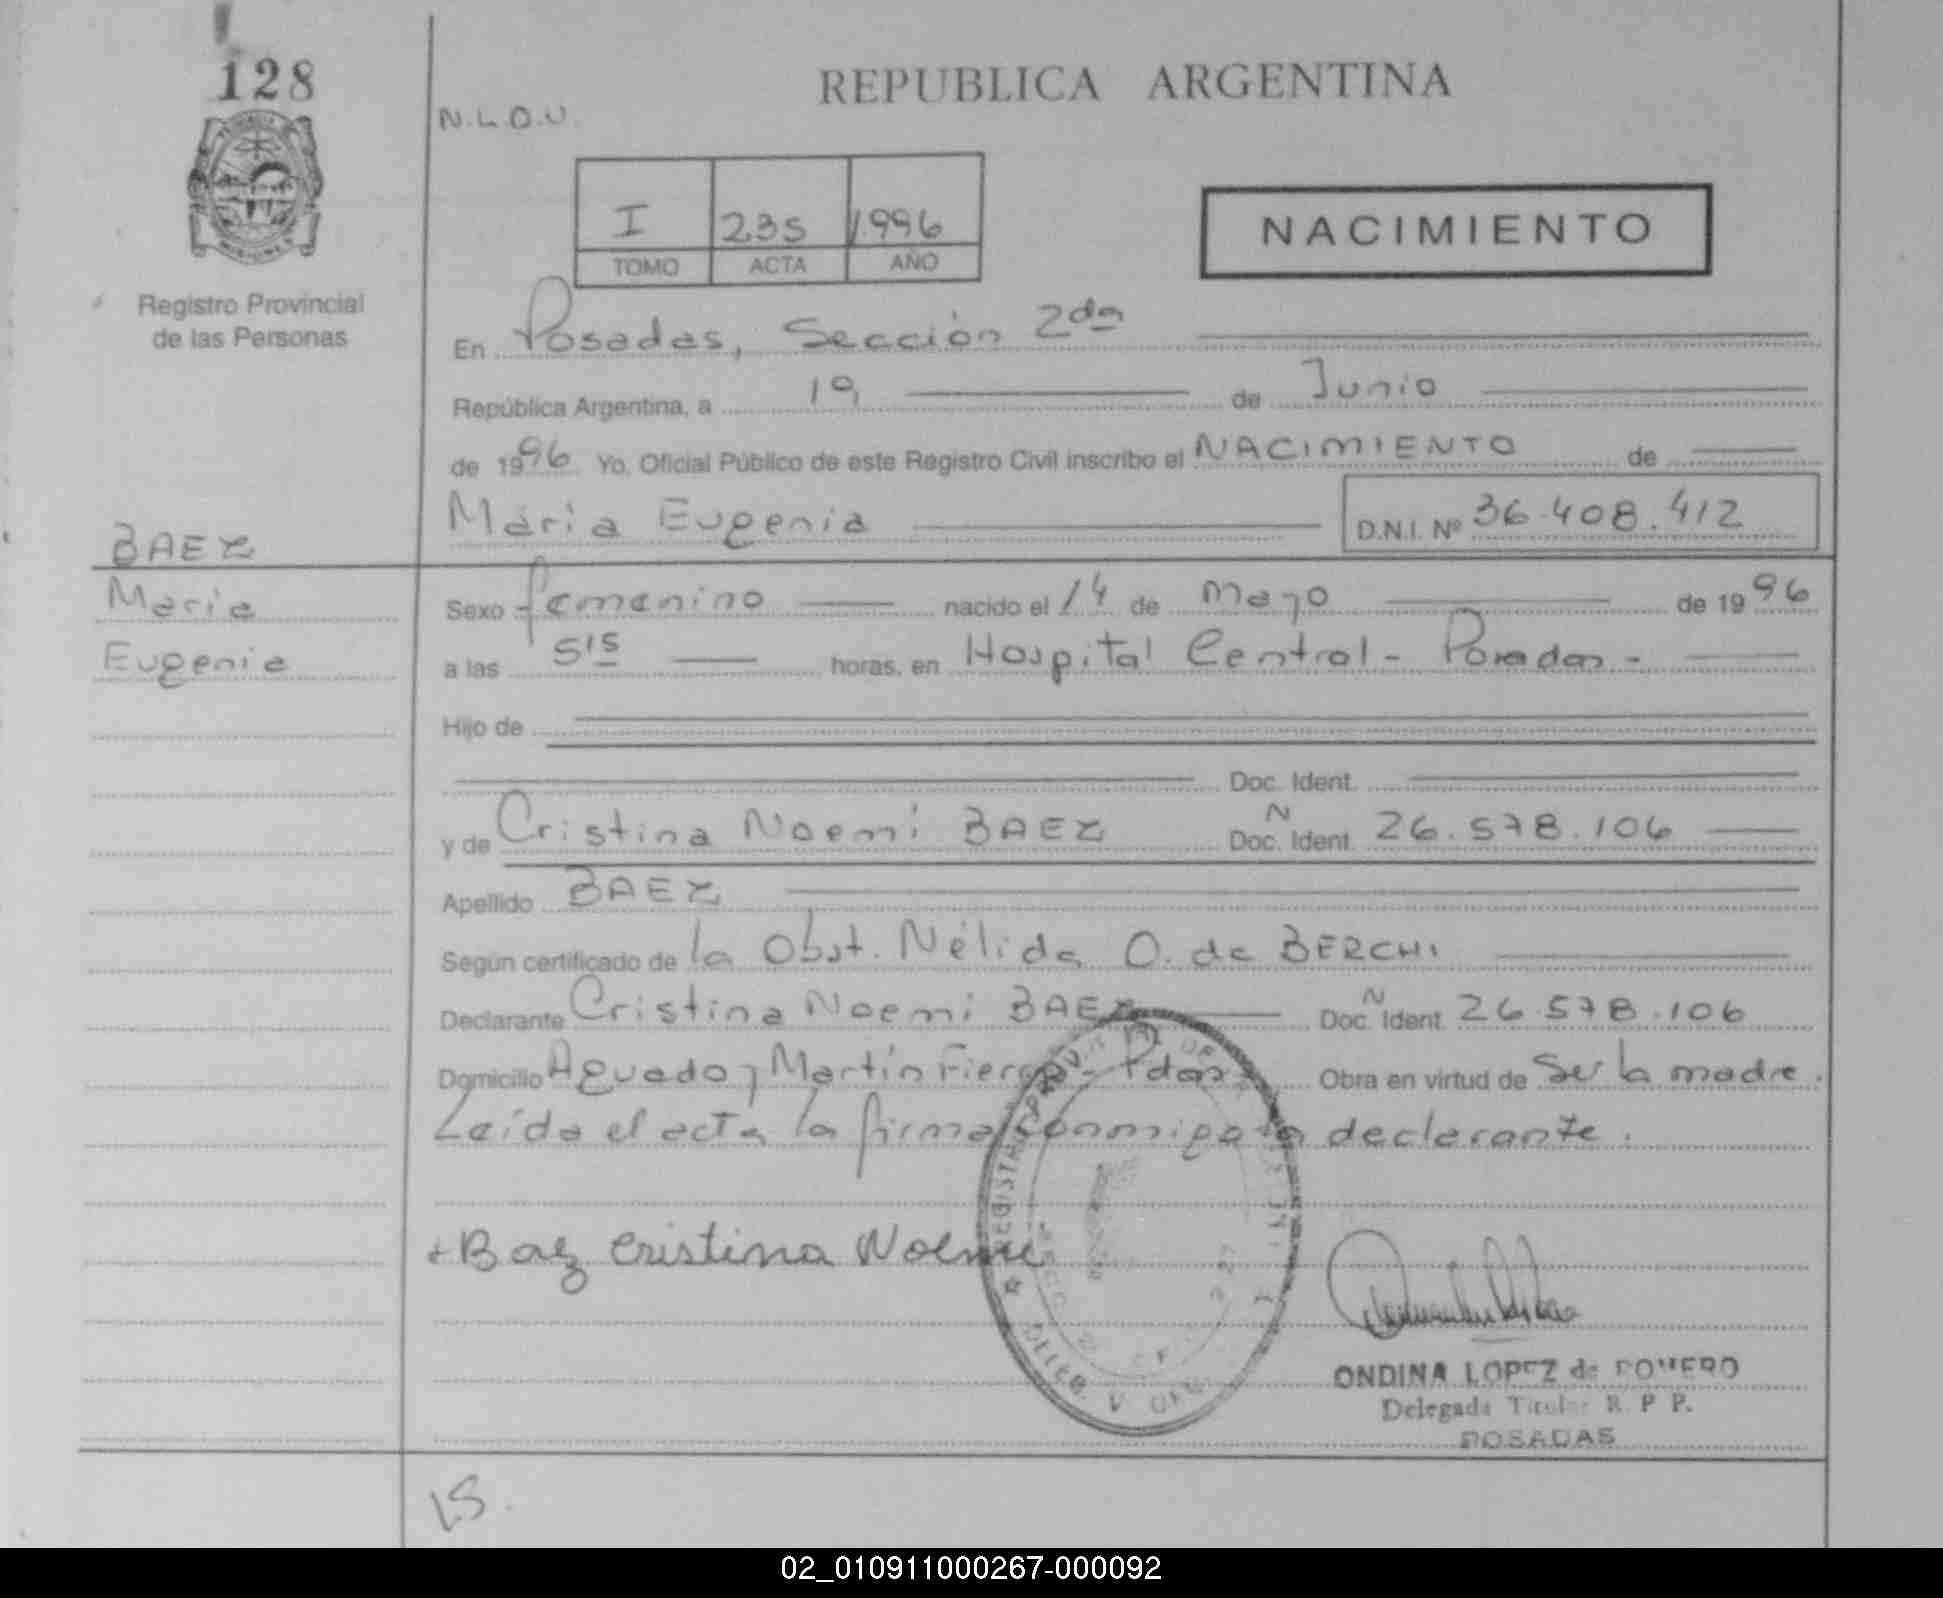 128
REPUBLICA ARGENTINA
N.L.O.U.
I 235 1.996
TOMO ACTA AÑO
NACIMIENTO
Registro Provincial
de las Personas
En Posadas, Sección 2da
República Argentina, a 19 de Junio
de 1996 Yo. Oficial Público de este Registro Civil inscribo el NACIMIENTO de
María Eugenia D.N.I. Nº 36.408.412
BAEZ
María
Eugenia
Sexo femenino nacido el 14 de Mayo de 1996
a las 5'15 horas, en Hospital Central - Posadas -
Hijo de
Doc. Ident.
y de Cristina Noemí BAEZ N Doc. Ident. 26.578.106
Apellido BAEZ
Según certificado de la Obst. Nélida O. de BERCHI
Declarante Cristina Noemí BAEZ N Doc. Ident. 26.578.106
Domicilio Aguado y Martín Fierro - Pdas Obra en virtud de Ser la madre.
Leída el acta la firma conmigo la declarante.
Baez Cristina Noemi
ONDINA LOPEZ de ROMERO
Delegada Titular R. P. P.
POSADAS
02_010911000267-000092